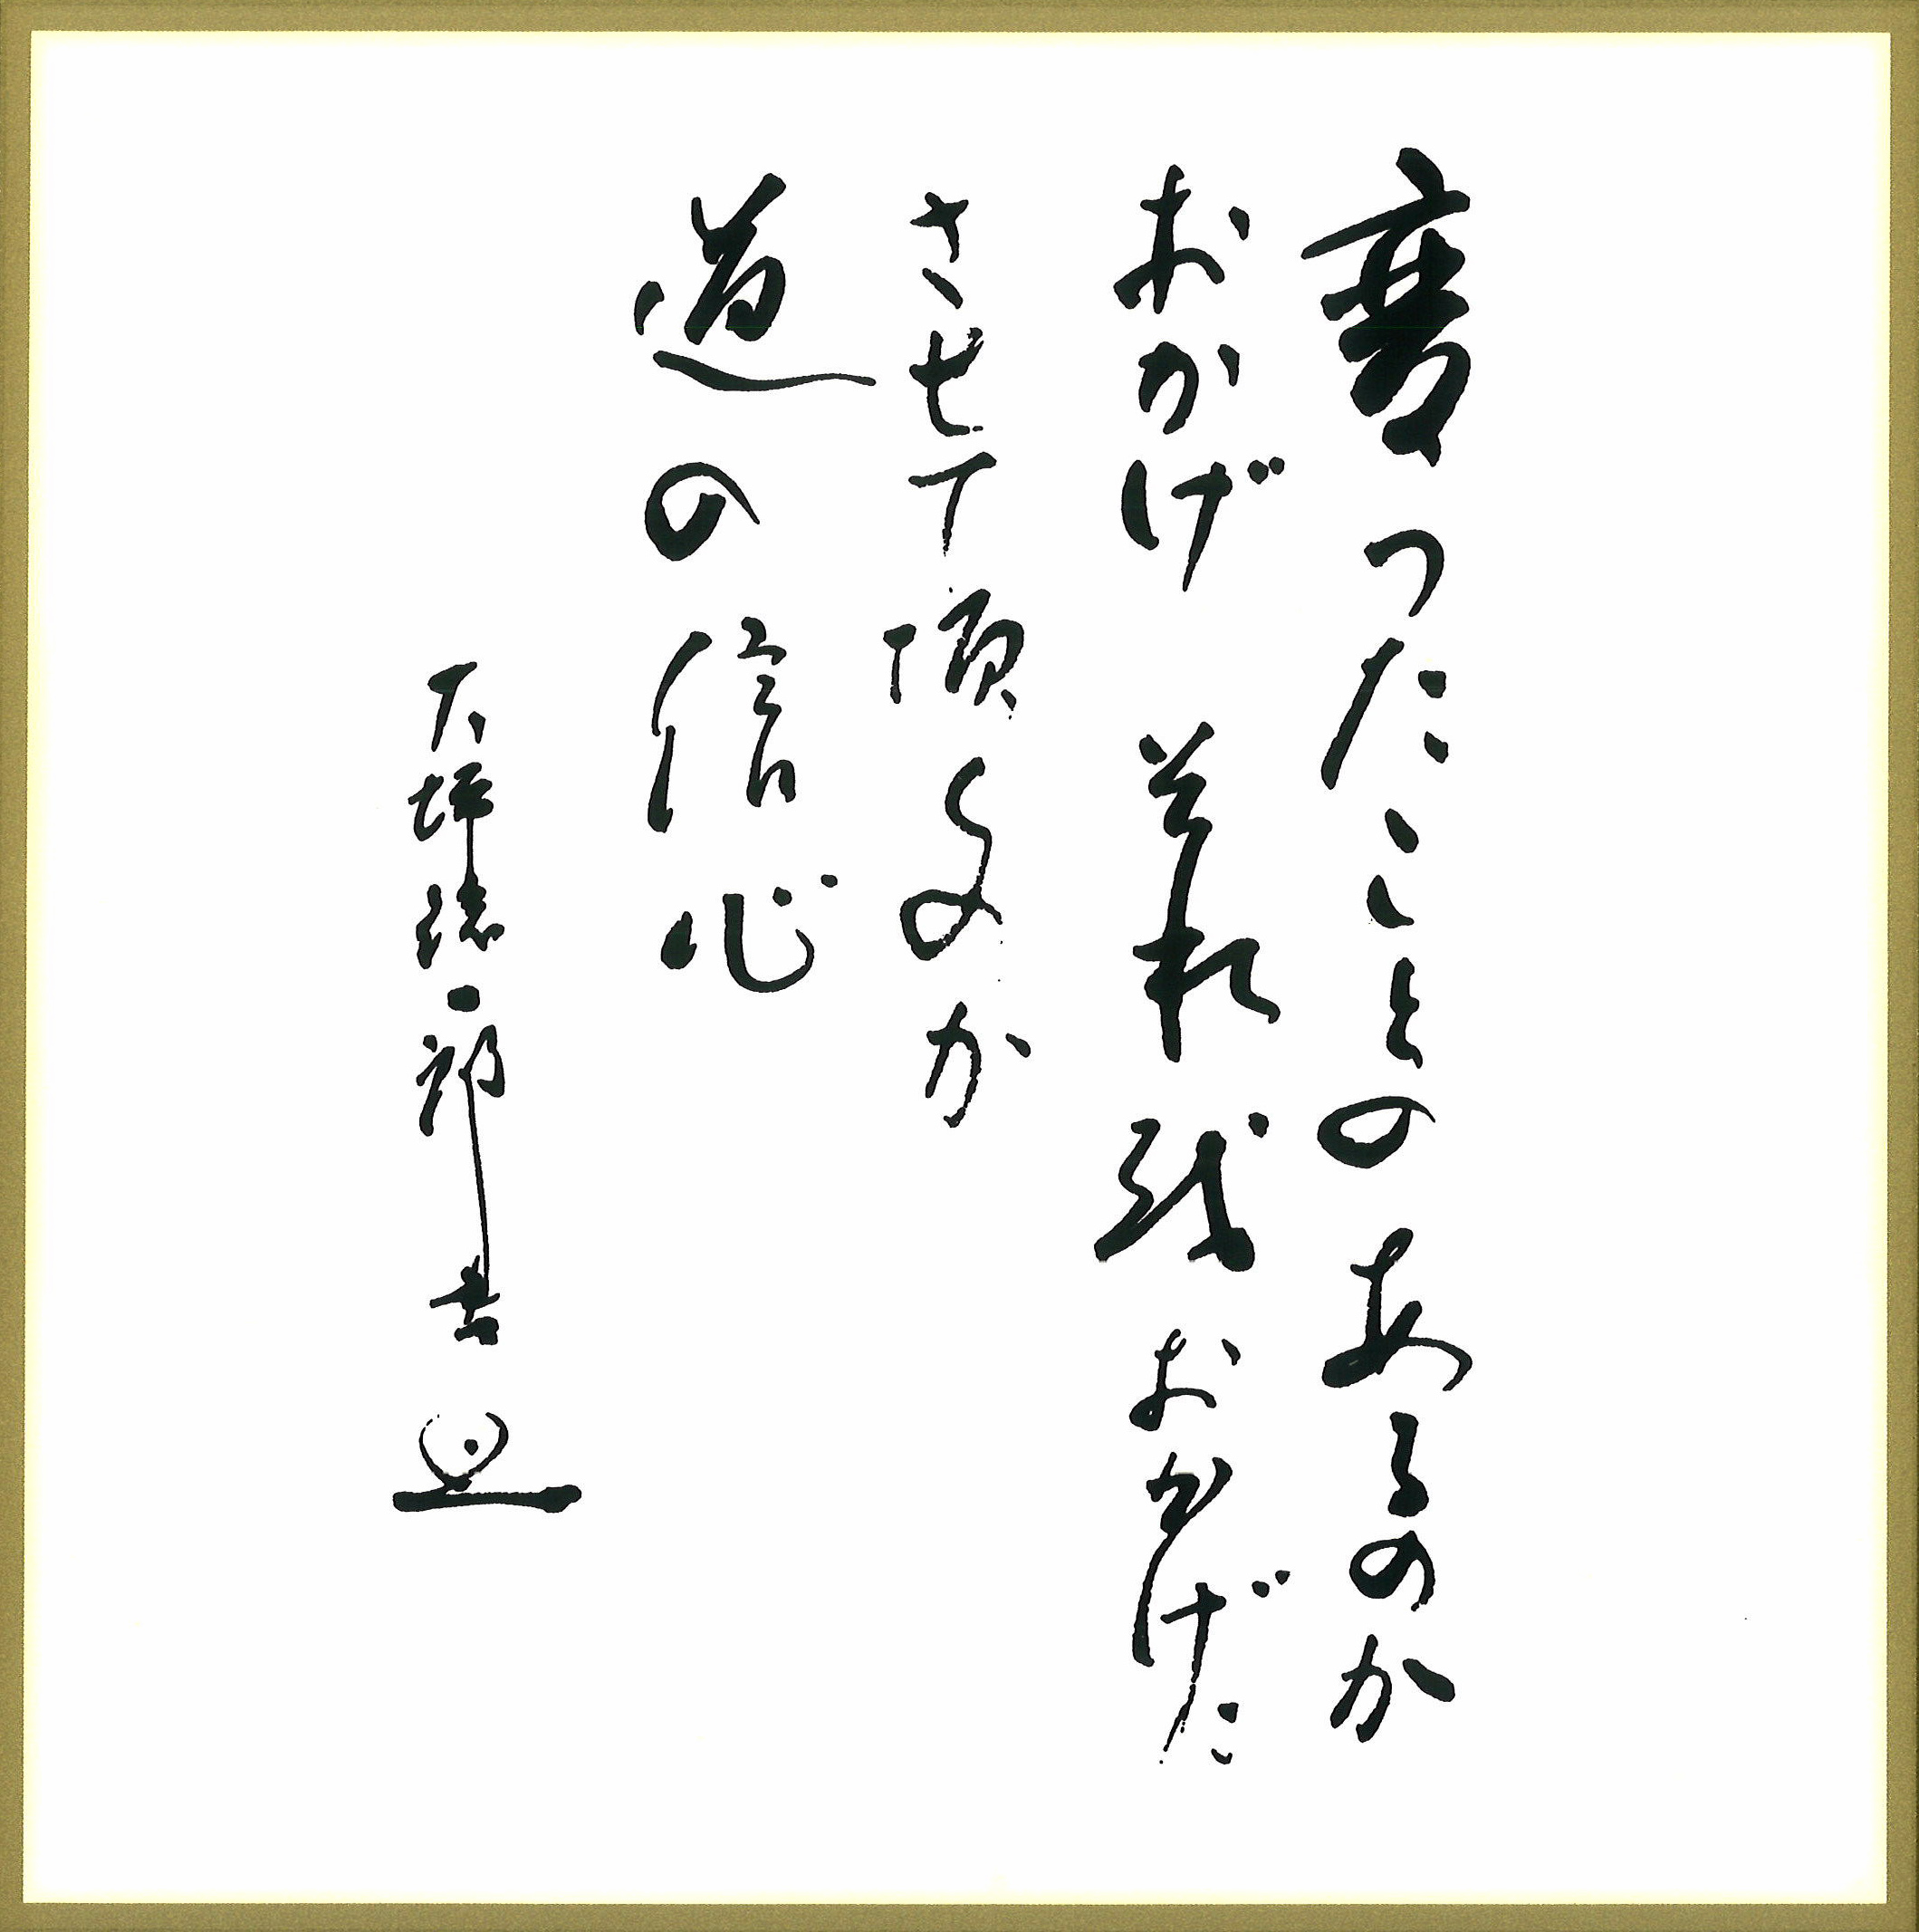 ったことのあるのか
おかげ それをおかげに
させて頂くのか
道の信心
大坪総一郎書